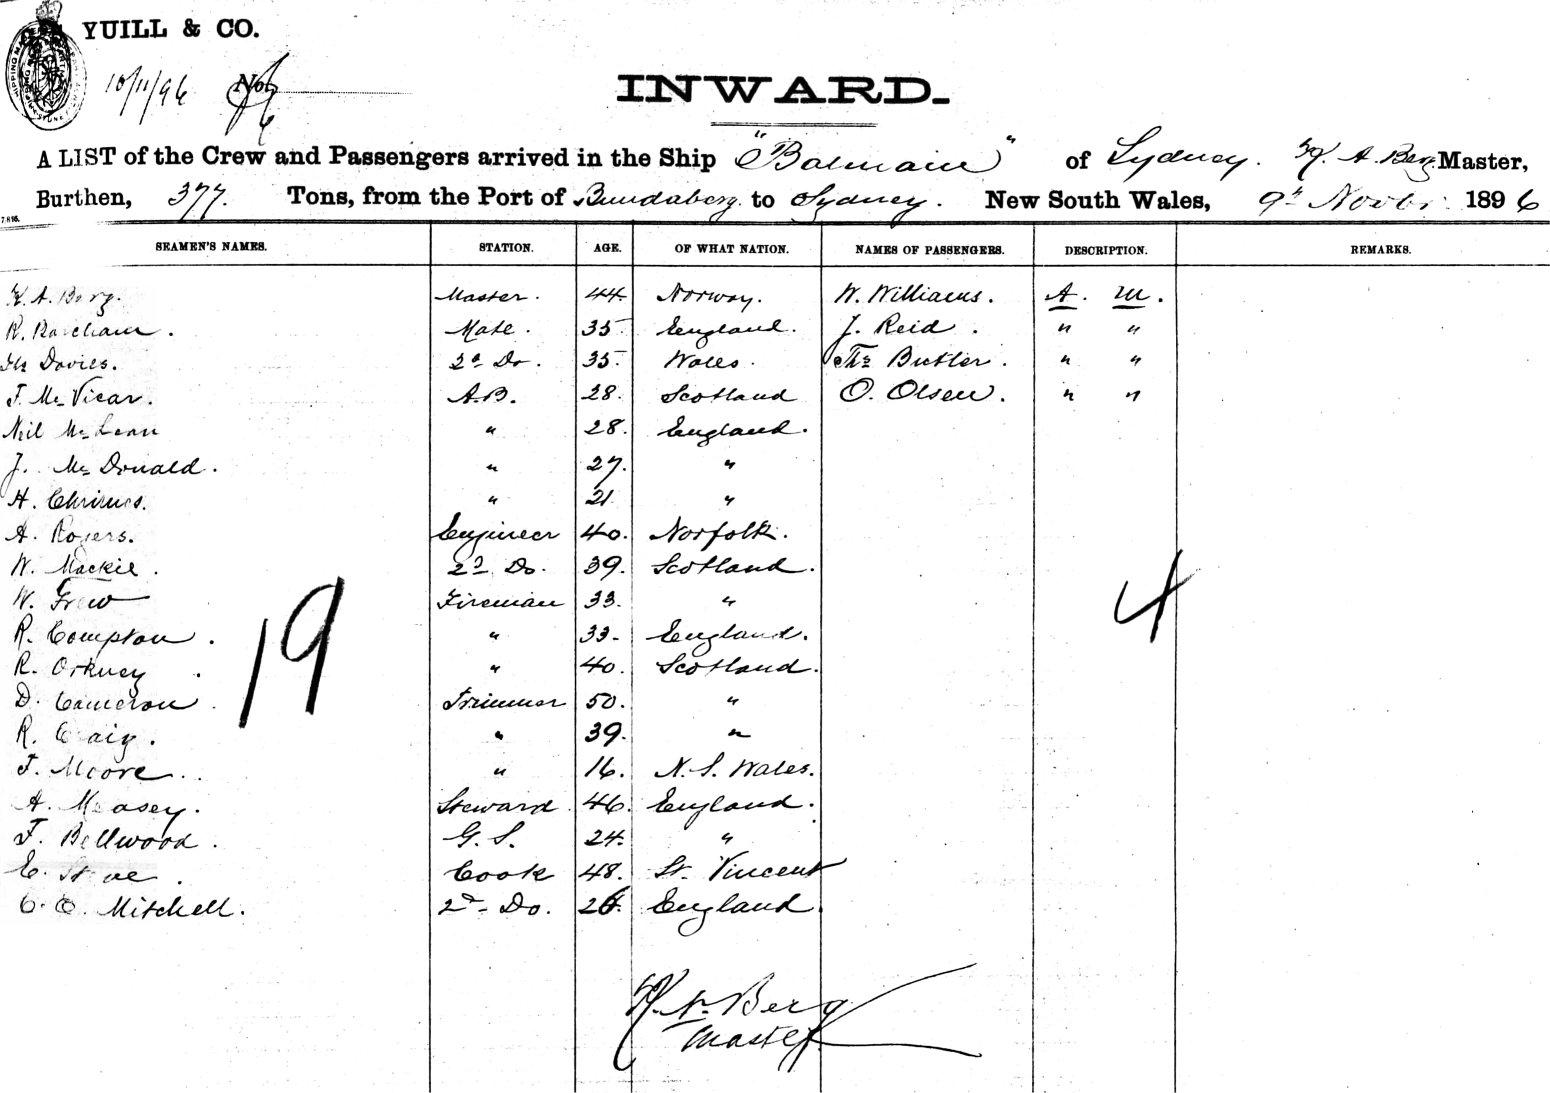 YUILL & CO.
10/11/96 No.
INWARD.
A LIST of the Crew and Passengers arrived in the Ship "Balmain" of Sydney. A. Berg Master,
Burthen, 377. Tons, from the Port of Bundaberg to Sydney. New South Wales, 9th Novbr. 1896
SEAMEN'S NAMES. STATION. AGE. OF WHAT NATION. NAMES OF PASSENGERS. DESCRIPTION. REMARKS.
A. Berg. Master. 44 Norway. W. Williams. A. M.
R. Barcham. Mate. 35 England. J. Reid. " "
Davies. 2d Do. 35 Wales. Ths Butler. " "
J. Mc Vicar. A.B. 28. Scotland O. Olsen. " "
Neil Mc Lean " 28. England.
J. Mc Donald. " 27. "
H. Chrimes. " 21 "
A. Rogers. Engineer 40. Norfolk.
W. Mackie. 2d Do. 39. Scotland.
W. Frew Fireman 33. "
R. Compton. " 33. England.
R. Orkney. " 40. Scotland.
D. Cameron. Trimmer 50. "
R. Craig. " 39. "
19
4
J. Moore. " 16. N. S. Wales.
A. Measey. Steward. 46. England.
F. Bellwood. G. S. 24. "
E. Cook 48. St. Vincent
C. C. Mitchell. 2d Do. England.
A. Berg
Master